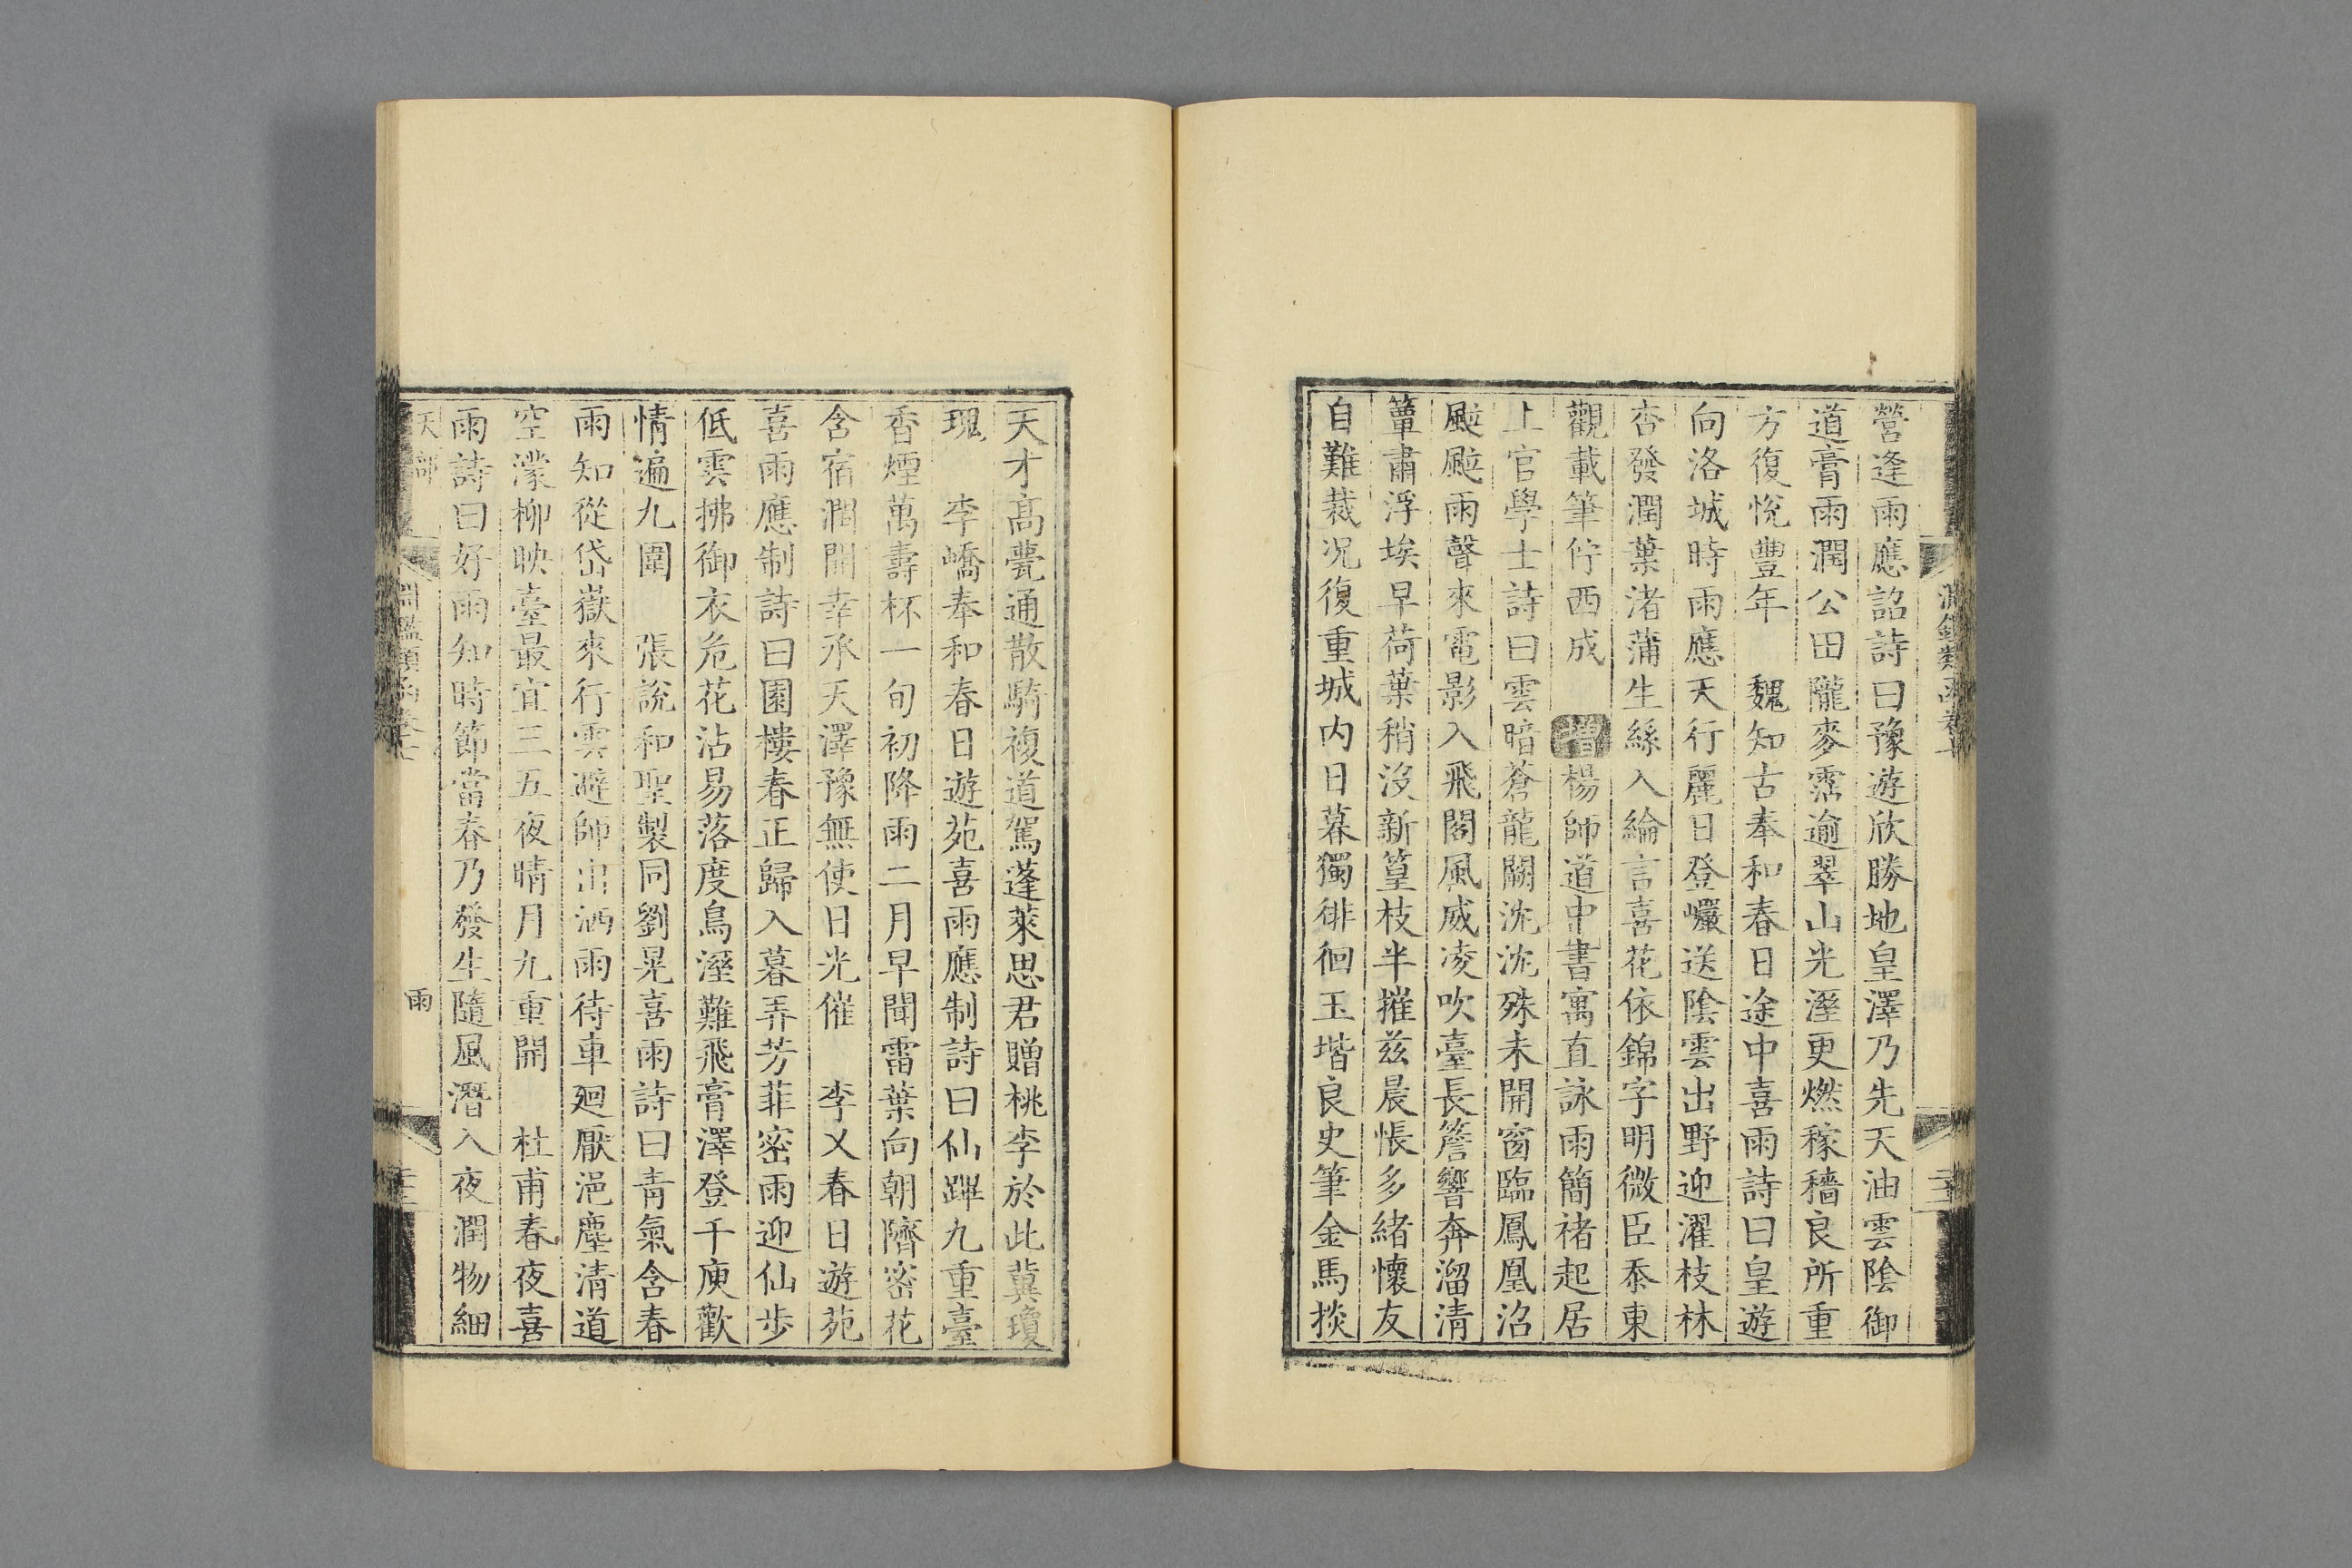 營逢雨應詔詩曰豫遊欣勝地皇澤乃先天油雲陰御
道膏雨潤公田隴麥霑逾翠山光溼更燃稼穡良所重
方復恱豐年　魏知古奉和春日途中喜雨詩曰皇遊
向洛城時雨應天行麗日登巘送陰雲出野迎濯枝林
杏發潤葉渚蒲生絲入綸言喜花依錦字明微臣忝東
觀載筆佇西成　增楊師道中書寓直詠雨簡褚起居
上官學士詩曰雲暗蒼龍闕沈沈殊未開窗臨鳳凰沼
颭颭雨聲來電影入飛閣風威凌吹臺長簷響奔溜清
簟肅浮埃早荷葉稍沒新篁枝半摧茲晨悵多緒懷友
自難裁况復重城内日暮獨徘徊玉堦良史筆金馬掞
天才高甍通散騎複道駕蓬萊思君贈桃李於此冀瓊
瑰　李嶠奉和春日遊苑喜雨應制詩曰仙蹕九重臺
香煙萬壽杯一旬初降雨二月早聞雷葉向朝隮密花
含宿潤開幸承天澤豫無使日光催　李乂春日遊苑
喜雨應制詩曰園樓春正歸入暮弄芳菲密雨迎仙步
低雲拂御衣危花沾易落度鳥溼難飛膏澤登千庾歡
情遍九圍　張説和聖製同劉晃喜雨詩曰青氣含春
雨知從岱嶽來行雲避師出洒雨待車廻厭浥塵清道
空濛柳映臺最宜三五夜晴月九重開　杜甫春夜喜
雨詩曰好雨知時節當春乃發生隨風潛入夜潤物細
天部
雨